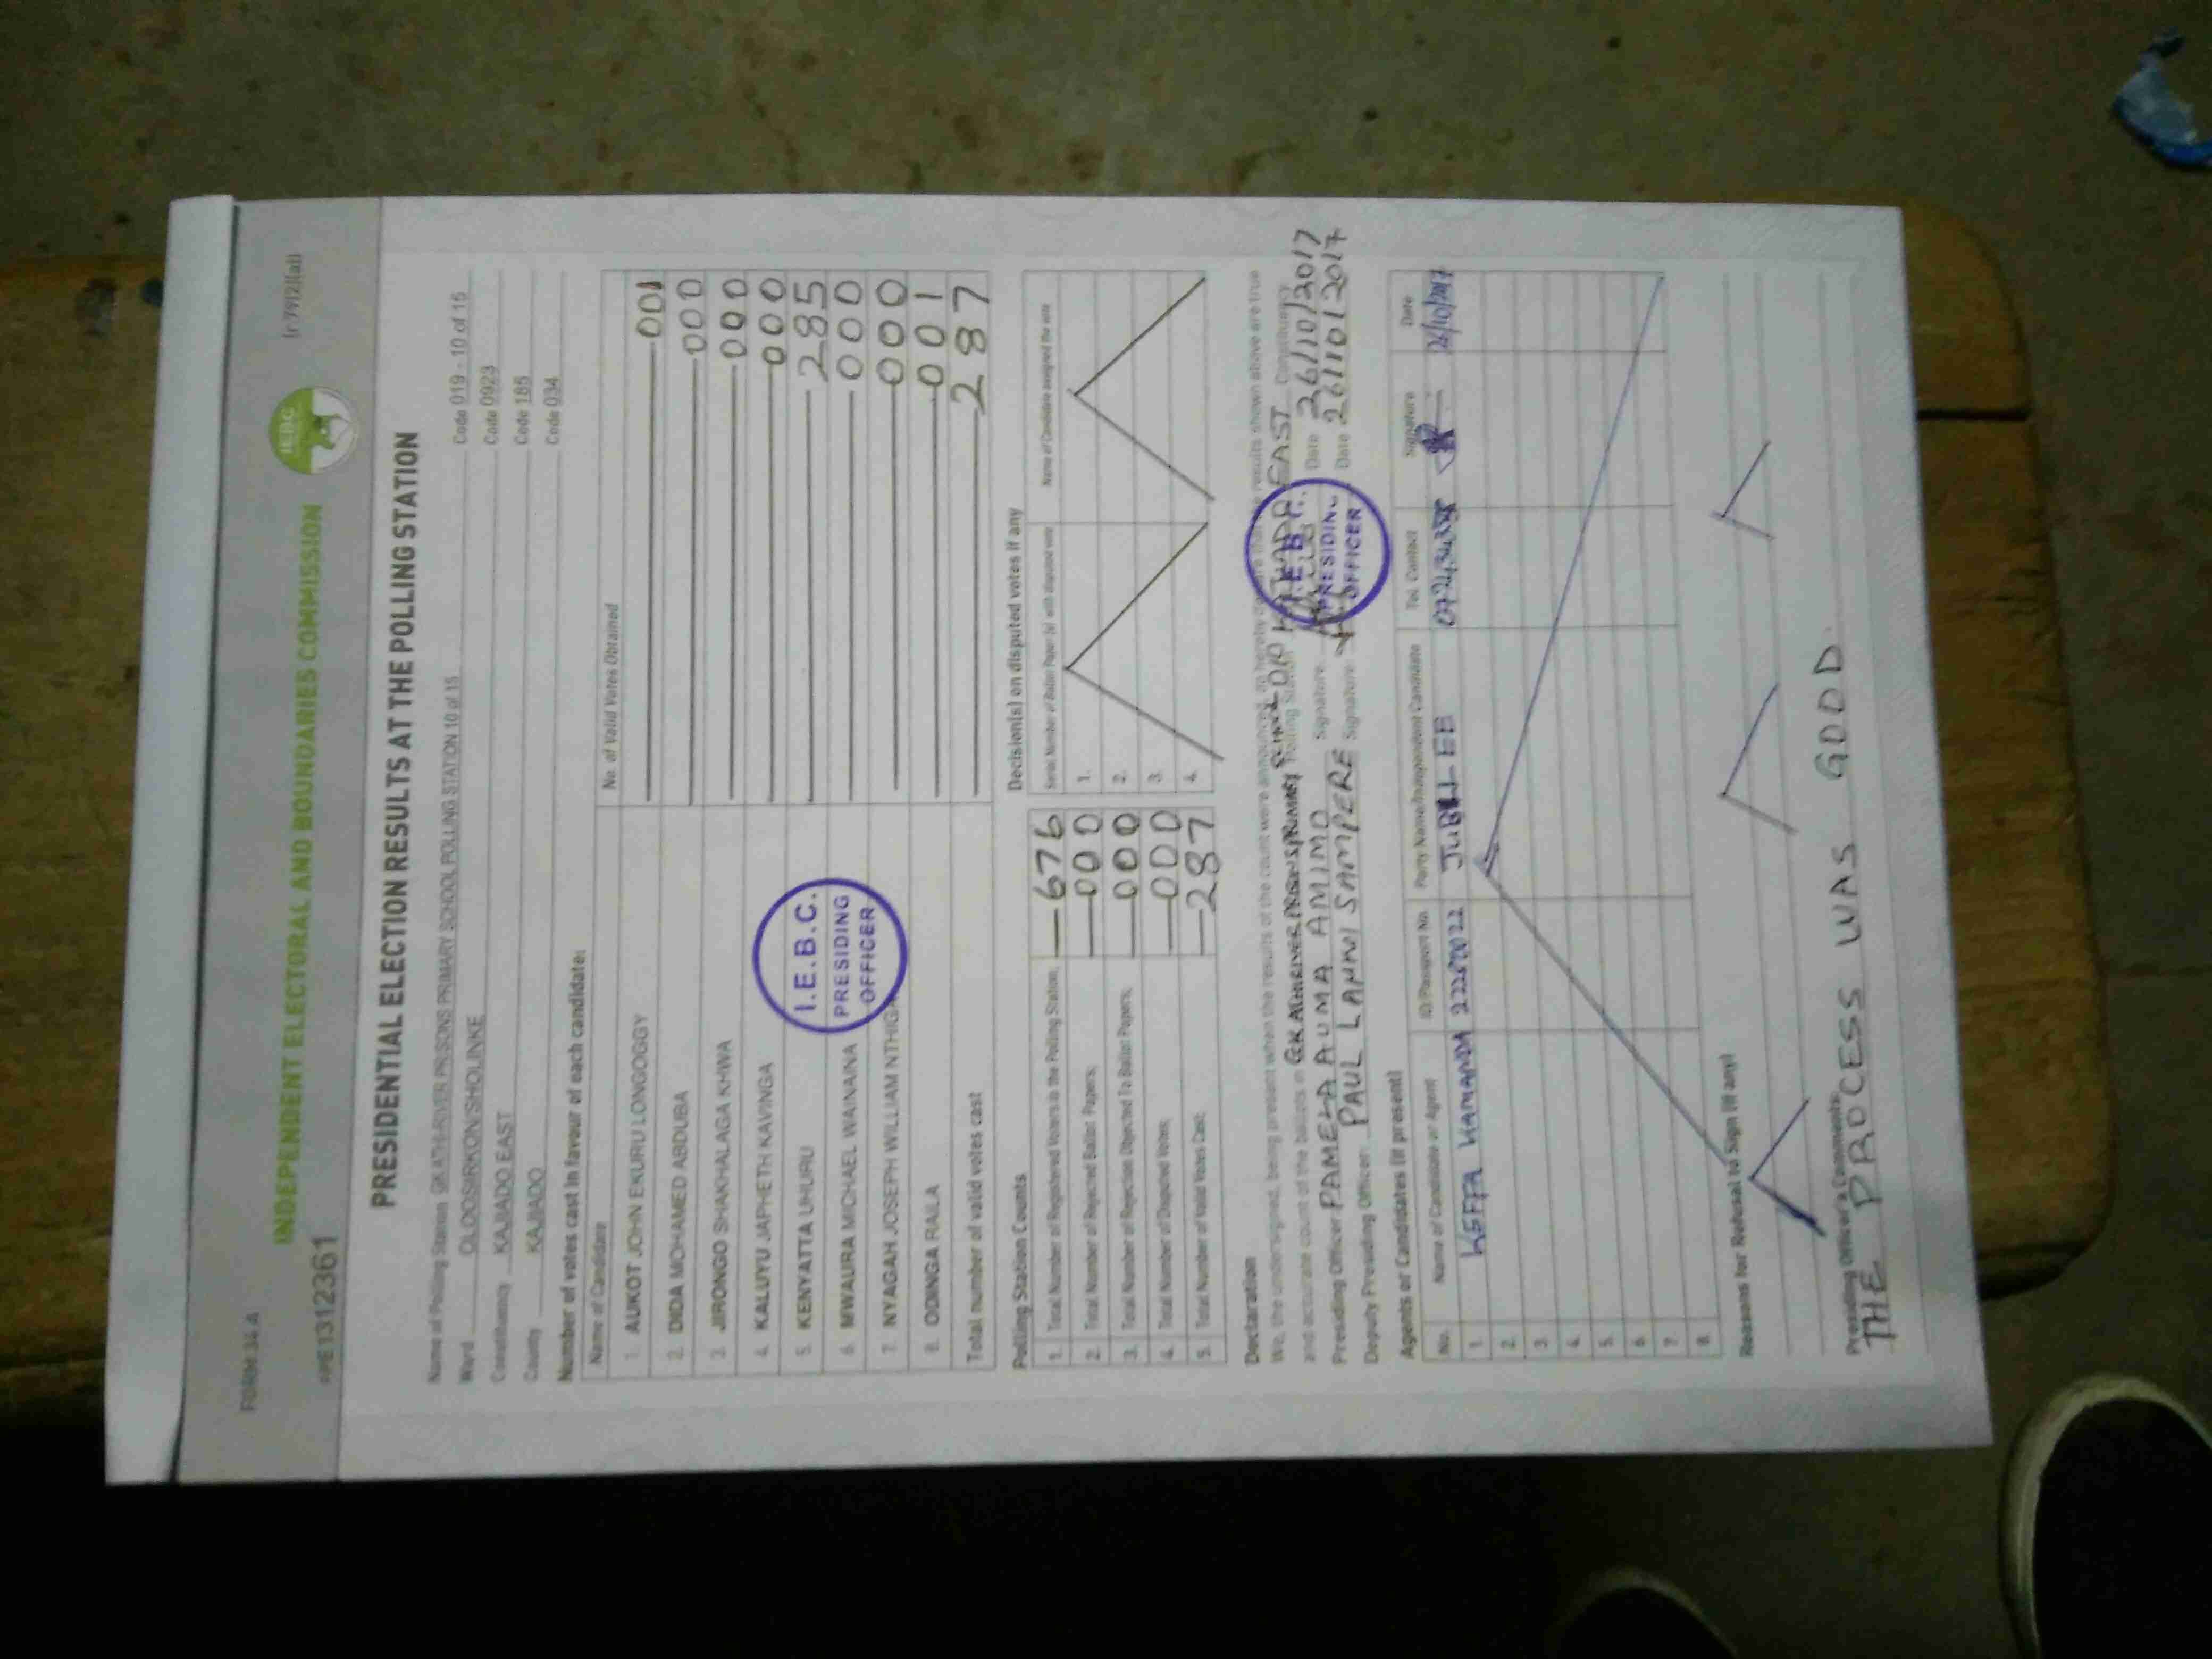 FORM 34 A
(r.79(2)(a))
INDEPENDENT ELECTORAL AND BOUNDARIES COMMISSION
IEBC
#PE1312361
PRESIDENTIAL ELECTION RESULTS AT THE POLLING STATION
Name of Polling Station GK ATHI-RIVER PRISONS PRIMARY SCHOOL POLLING STATION 10 of 15 Code 019 - 10 of 15
Ward OLOOSIRKON/SHOLINKE Code 0923
Constituency KAJIADO EAST Code 185
County KAJIADO Code 034
Number of votes cast in favour of each candidate:
Name of Candidate No. of Valid Votes Obtained
1. AUKOT JOHN EKURU LONGOGGY 001
2. DIDA MOHAMED ABDUBA 000
3. JIRONGO SHAKHALAGA KHWA 000
4. KALUYU JAPHETH KAVINGA 000
5. KENYATTA UHURU 285
6. MWAURA MICHAEL WAINAINA 000
7. NYAGAH JOSEPH WILLIAM 000
8. ODINGA RAILA 001
Total number of valid votes cast 287
I.E.B.C.
PRESIDING
OFFICER
Polling Station Counts
1. Total Number of Registered Voters in the Polling Station; 676
2. Total Number of Rejected Ballot Papers; 000
3. Total Number of Rejection Objected To Ballot Papers; 000
4. Total Number of Disputed Votes; 000
5. Total Number of Valid Votes Cast; 287
Decision(s) on disputed votes if any
Serial Number of Ballot Paper (s) with disputed vote Name of Candidate assigned the vote
1.
2.
3.
4.
Declaration
We, the undersigned, being present when the results of the count were announced, do hereby declare that the results shown above are true
and accurate count of the ballots in Polling Station EAST Constituency
Presiding Officer PAMELA AUMA AMIMO Signature Date 26/10/2017
Deputy Presiding Officer: PAUL SAMPERE Signature Date 26/10/2017
I.E.B.C.
PRESIDING
OFFICER
Agents or Candidates (if present)
No. Name of Candidate or Agent ID/Passport No. Party Name/Independent Candidate Tel. Contact Signature Date
1. JUBILEE 26/10/2017
2.
3.
4.
5.
6.
7.
8.
Reasons for Refusal to Sign (if any)
Presiding Officer's Comments
THE PROCESS WAS GOOD.